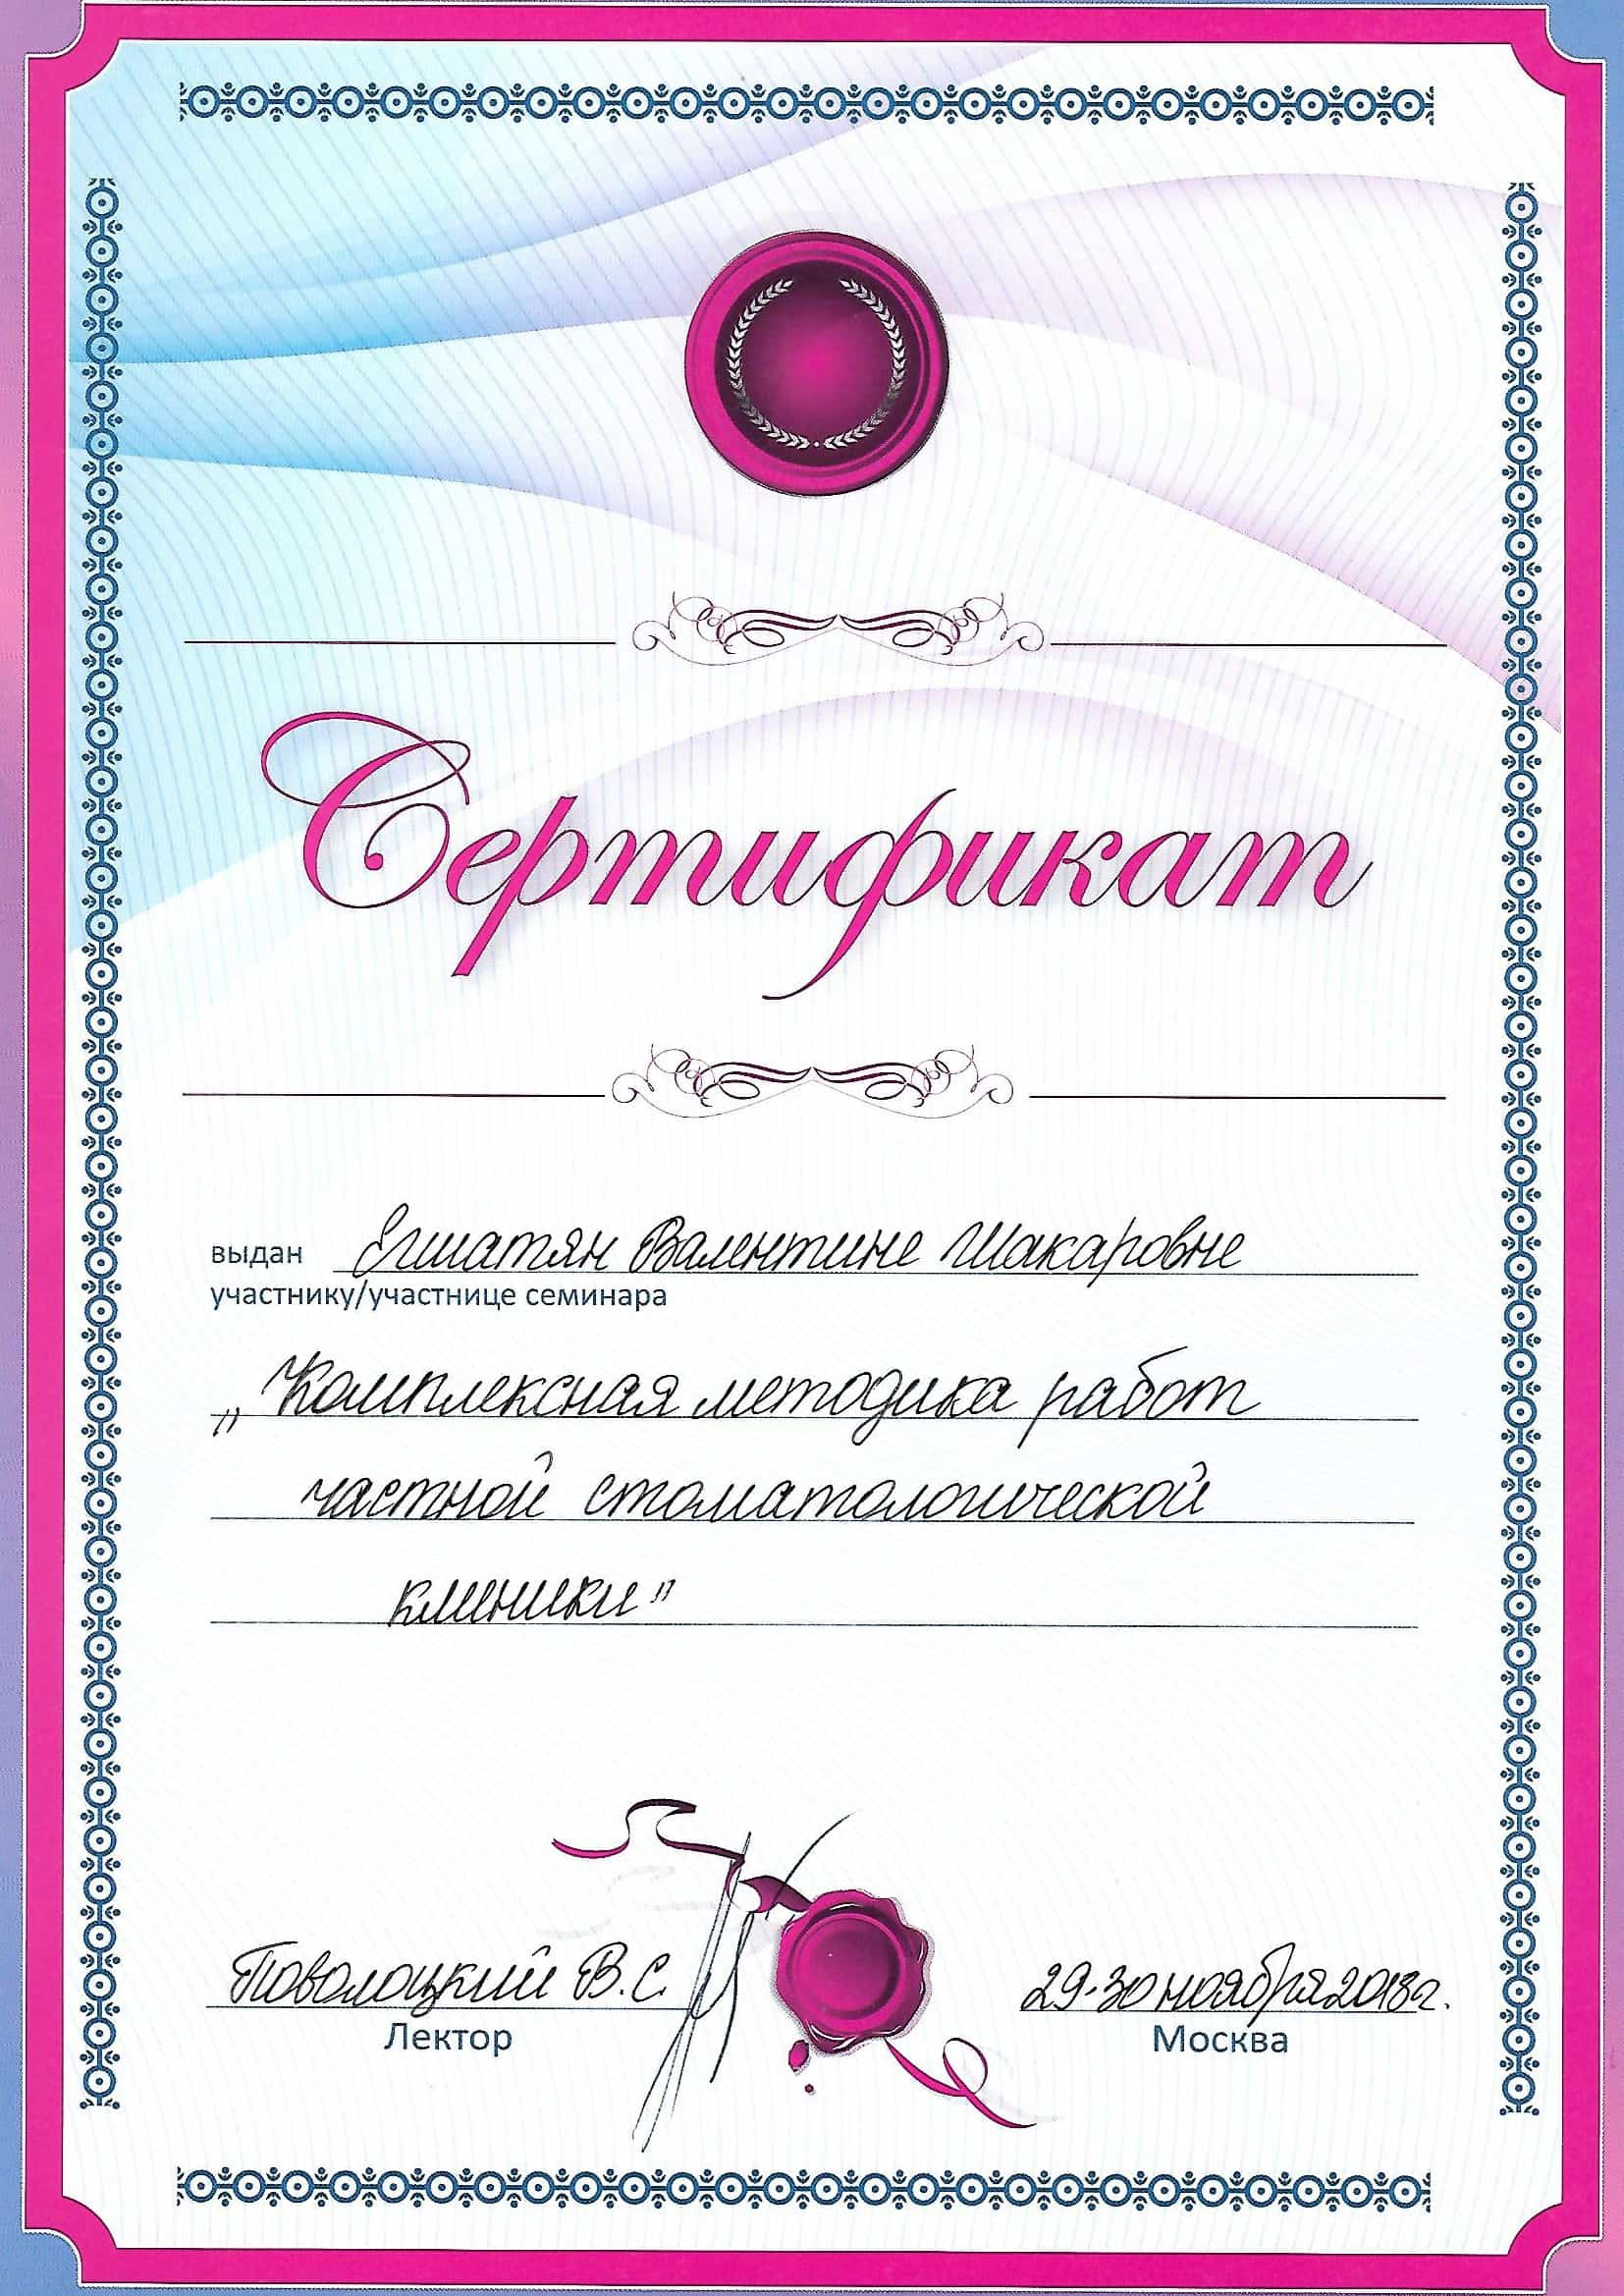 Сертификат
выдан Егшатян Валентине Шакаровне
участнику/участнице семинара
„Комплексная методика работ
частной стоматологической
клиники"
Поволоцкий В.С. 29-30 ноября 2018г.
Лектор Москва